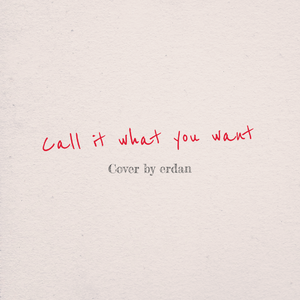 Call it what you want
Cover by erdan